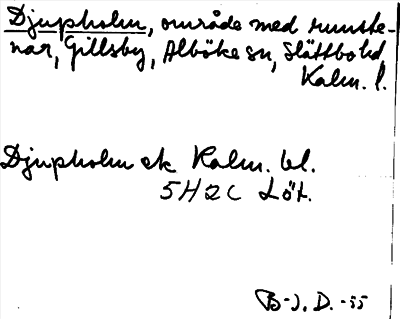 Djupholm, område med runste-
nar, Gillsby, Alböke sn, Slättbo hd
Kalm. l.
Djupholm ek Kalm. bl.
5H2C Löt.
B-J. D. -55